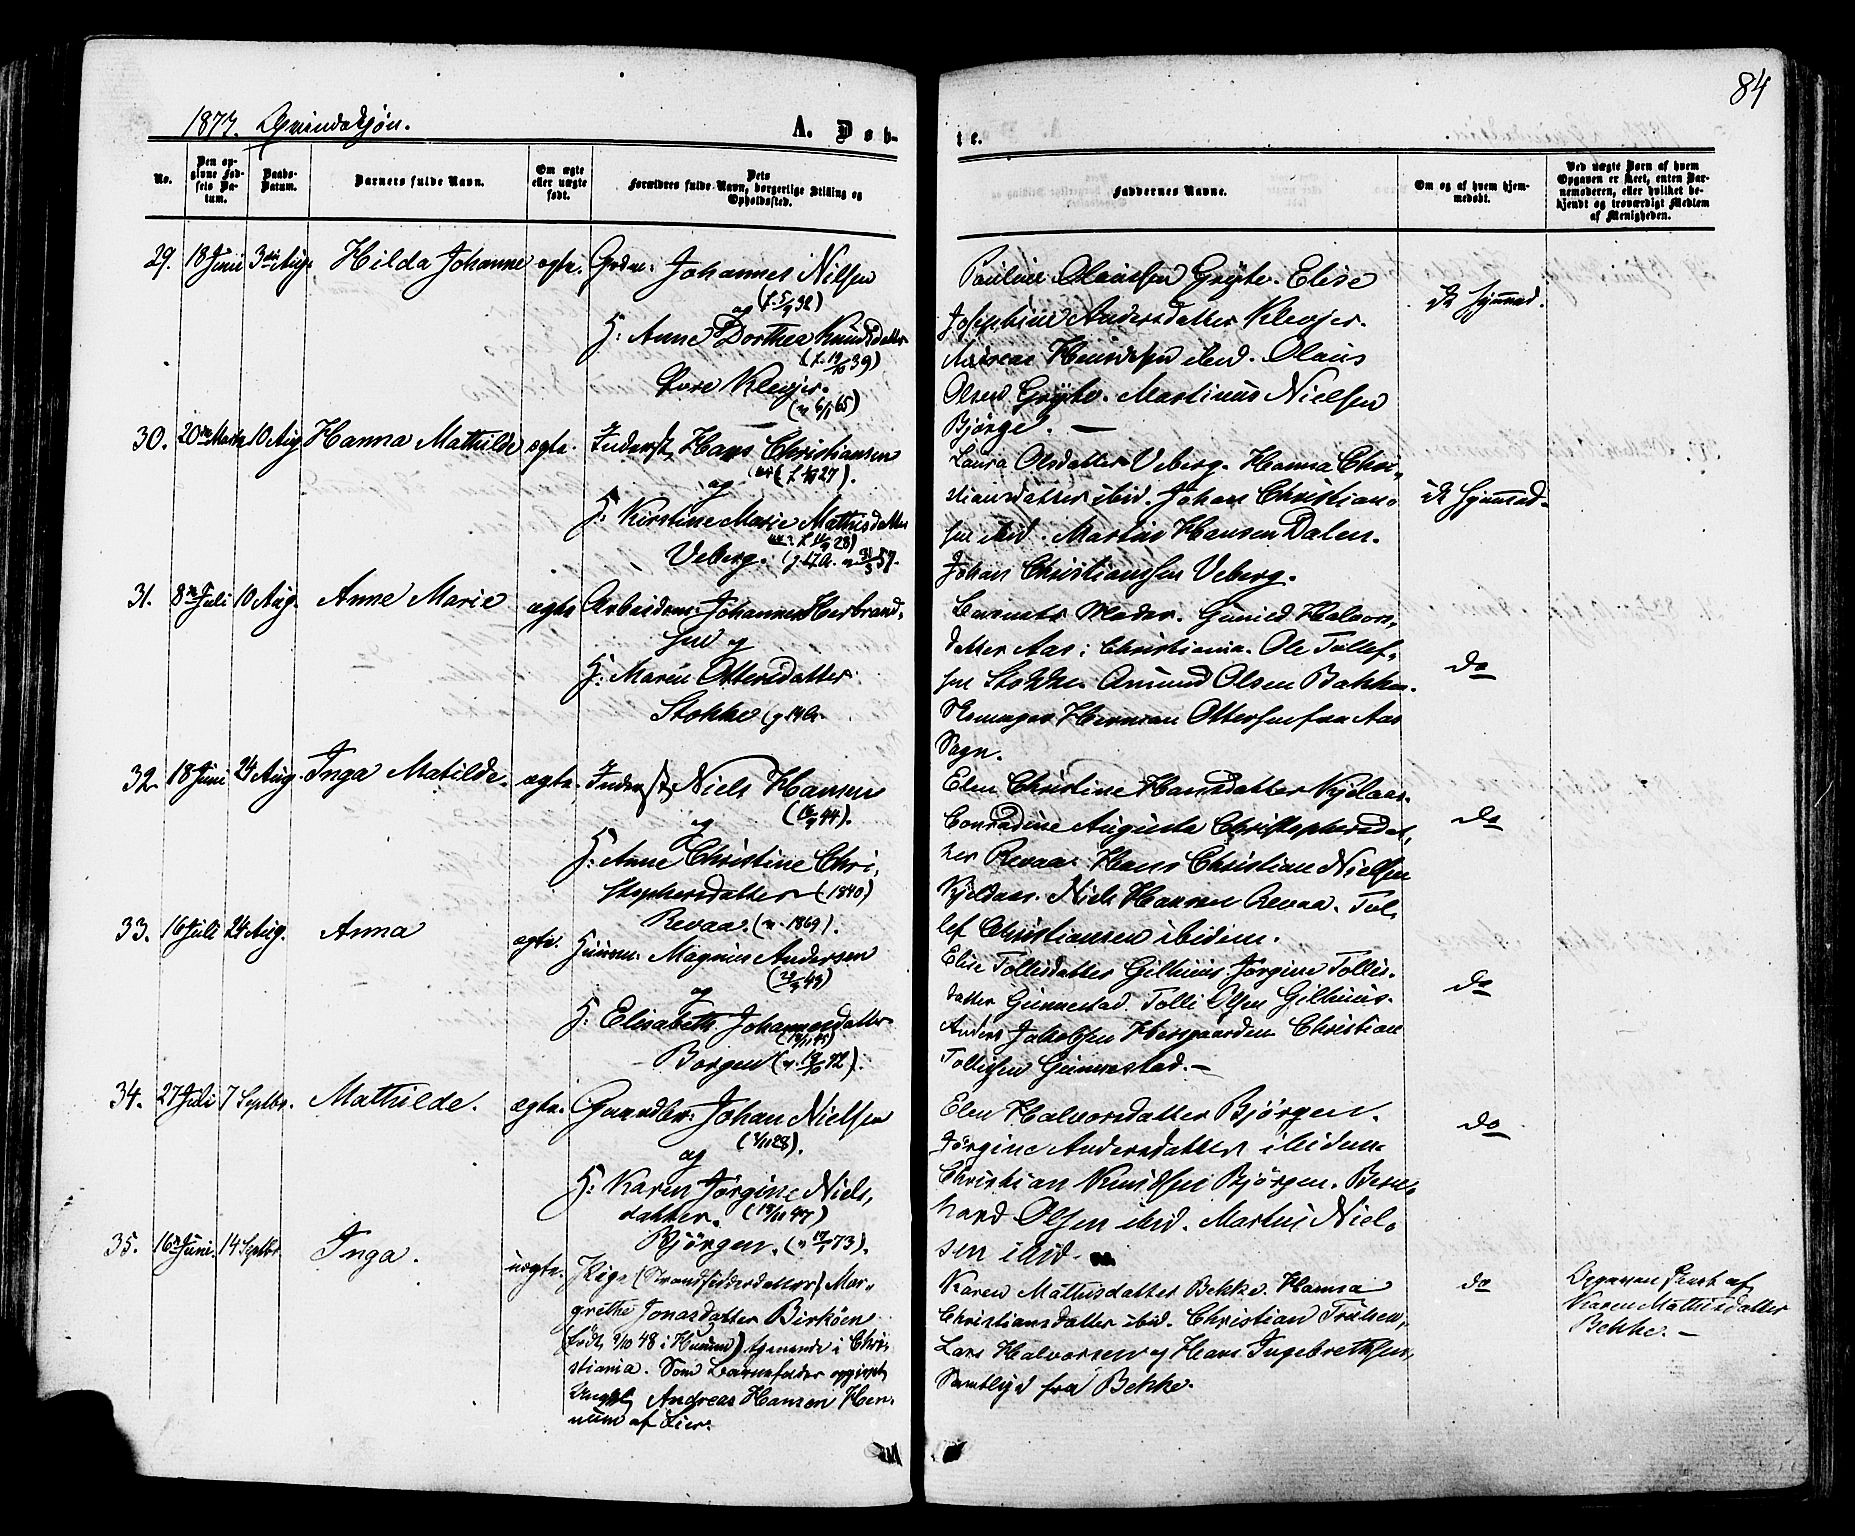 84
1873. Qvindekjøn.
A. Døb-
te.
No.
Den op-
givne Fød-
sels Da-
tum.
Daabs-
Datum.
Barnets fulde Navn.
Om ægte
eller uægte
født.
Dets
Forældres fulde Navn, borgerlige Stilling og
Opholdssted.
Faddernes Navne.
Om og af hvem hjem-
medøbt.
Ved uægte Børn af hvem
Opgaven er skeet, enten Bar-
nemoderen, eller hvilket be-
kjendt og troværdigt Medlem
af Menigheden.
29. 18 Juni 3die Aug. Hilda Johanne ægte. Johannes Nilsen
og
H: Anne Dorthea Knudsdatter
Klevjer.
Olaussen Gryte. Elise
Josephine Andersdatter Klevjer.
ibid. Olaus
Olsen Gryte. Martinus Nielsen
Bjørge. —
30. 20de Marts 10 Aug. Hanna Mathilde ægte. Inderst, Hans Christiansen
og
H: Kirstine Marie Mathisdatter
Veberg.
Laura Olsdatter Veberg. Hanna Chri-
stiansdatter ibid. Johan Christian-
sen ibid. Martin Hansen Dalen.
Johan Christianssen Veberg.
31. 8de Juli 10 Aug. Anne Marie ægte Arbeidsm: Johannes Herbrand-
sen og
H: Maren Ottersdatter
Stokke
Barnets Moder. Gunild Halvors-
datter Aas i Christiania. Ole Tollef-
sen Stokke. Amund Olsen Bakken.
Herman Ottersen fra Aas
Sogn.
do
32. 18 Juni 24 Aug. Inga Matilde. ægte. Inderst, Niels Hansen
og
H: Anne Christine Chri-
stophersdatter (1840)
Revaa. (v. 1869).
Elen Christine Hansdatter Kjelaas.
Conradine Augusta Christophersdat-
ter Revaa. Hans Christian Nielsen
Kjeldaas. Niels Hansen Revaa. Tol-
lef Christiansen ibidem.
do
33. 16 Juli 24 Aug. Anna ægte. Huusm: Magnus Andersen
og
H: Elisabeth Johannesdatter
Borgen
Elise Tollisdatter Gilhuus. Jørgine Tollis-
datter Gunnestad. Tolli Olsen Gilhuus.
Anders Jakobsen Hergaarden Christian
Tollisen Gunnestad. —
do
34. 27 Juli 7 Septbr. Mathilde. ægte. Gaardbr: Johan Nielsen
og
H: Karen Jørgine Niels-
datter.
Bjørgen.
Elen Halvorsdatter Bjørgen.
Jørgine Andersdatter ibidem.
Christian Knudsen Bjørgen. Bern-
hard Olsen ibid. Martin Niel-
sen ibid.
do
35. 16de Juni. 14 Septbr. Inga. uægte. Pige (Strandsidderdatter) Mar-
grethe Jonasdatter Birköen
(født 9/10 48 i Hurum) tjenende i Chri-
stiania. Som Barnefader opgives
Ungkl. Andreas Hansen Hen-
num af Lier.
Karen Mathisdatter Bekke. Hanna
Christiansdatter ibid. Christian Trulsen,
Lars Halvorsen og Hans Ingebrethsen,
Samtlige fra Bekke.
do
Opgaven skeet af
Karen Mathisdatter
Bekke. —